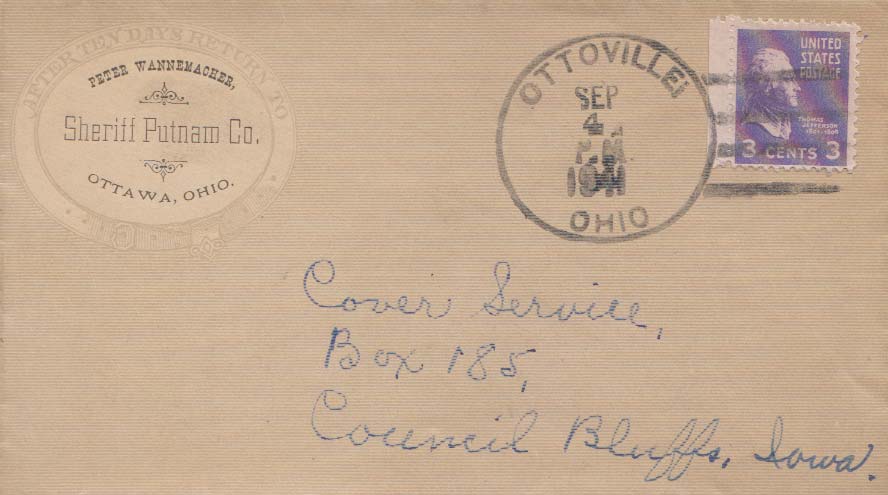 AFTER TEN DAYS RETURN TO
PETER WANNEMACHER,
Sheriff Putnam Co.
OTTAWA, OHIO.
OTTOVILLE
SEP
4
P.M.
1941
OHIO
UNITED
STATES
POSTAGE
THOMAS
JEFFERSON
1801-1809
3 CENTS 3
Cover Service,
Box 185,
Council Bluffs, Iowa.